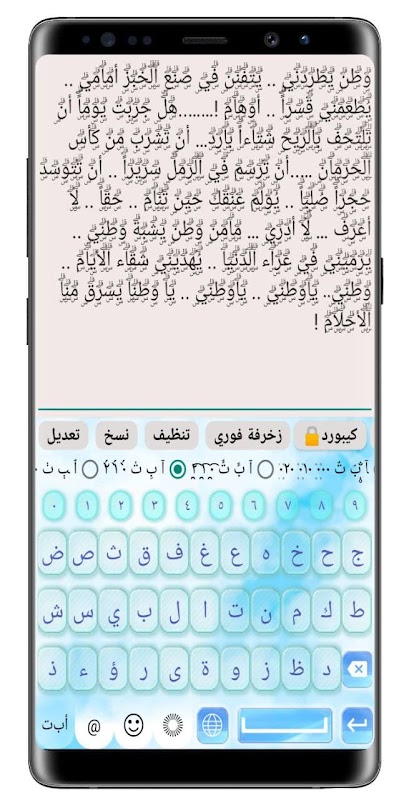 وطن يطردني .. يتفنن في صنع الخبز أمامي ..
يطعمني قسراً .. أوهام !........هل جربت يوماً أن
تلتحف بالريح شتاءاً بارد... أن تشرب من كأس
الحرمان .....أن ترسم في الرمل سريراً .. أن تتوسد
حجراً صلباً .. يؤلم عنقك حين تنام .. حقاً .. لا
أعرف ... لا أدري ... مامن وطن يشبه وطني ..
يرميني في عراء الدنيا .. يهديني شقاء الأيام ..
وطني.. ياوطني .. ياوطني .. يا وطناً يسرق منا
الأحلام !
كيبورد🔒 زخرفة فوري تنظيف نسخ تعديل
٠ ١ ٢ ٣ ٤ ٥ ٦ ٧ ٨ ٩
ض ص ث ق ف غ ع ه خ ح ج
ش س ي ب ل ا ت ن م ك ط
ذ ء ؤ ر ى ة و ز ظ د
أبت @